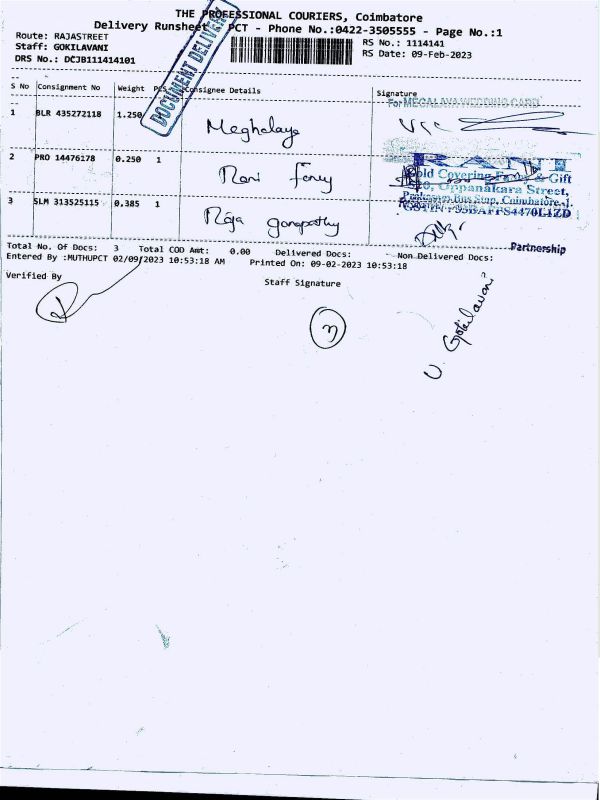 THE PROFESSIONAL COURIERS, Coimbatore
Delivery Runsheet PCT - Phone No.:0422-3505555 - Page No.:1
Route: RAJASTREET
RS No.: 1114141
Staff: GOKILAVANI
RS Date: 09-Feb-2023
DRS No.: DCJB111414101
DOCUMENT DELIVER
S No Consignment No Weight PCS Consignee Details Signature
For MEGALAYA WEDDING CARD
1 BLR 435272118 1.250 Meghalaya
2 PRO 14476178 0.250 1 Rani fancy
RANI
Gold Covering Fancy & Gift
Oppanakara Street,
Bus Stop, Coimbatore-1.
3 SLM 313525115 0.385 1 Raja ganapathy
Partnership
Total No. Of Docs: 3 Total COD Amt: 0.00 Delivered Docs: Non Delivered Docs:
Entered By :MUTHUPCT 02/09/2023 10:53:18 AM Printed On: 09-02-2023 10:53:18
Verified By
Staff Signature
3
V. Gokilavani